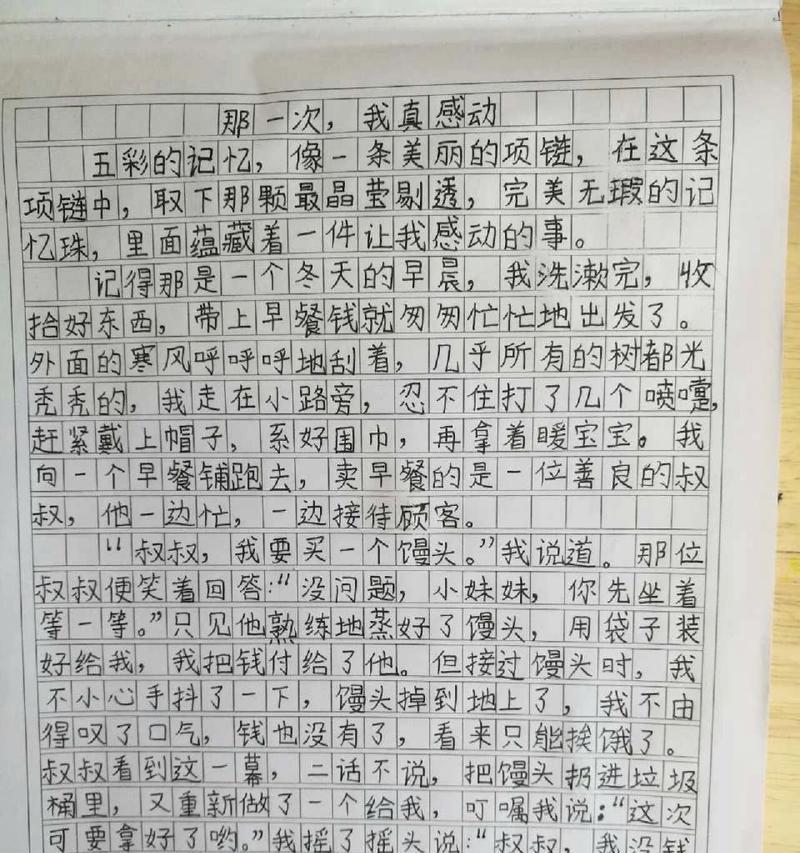 那一次，我真感动
五彩的记忆，像一条美丽的项链，在这条
项链中，取下那颗最晶莹剔透，完美无瑕的记
忆珠，里面蕴藏着一件让我感动的事。
记得那是一个冬天的早晨，我洗漱完，收
拾好东西，带上早餐钱就匆匆忙忙地出发了。
外面的寒风呼呼呼地刮着，几乎所有的树都光
秃秃的，我走在小路旁，忍不住打了几个喷嚏，
赶紧戴上帽子，系好围巾，再拿着暖宝宝。我
向一个早餐铺跑去，卖早餐的是一位善良的叔
叔，他一边忙，一边接待顾客。
“叔叔，我要买一个馒头。”我说道。那位
叔叔便笑着回答：“没问题，小妹妹，你先坐着
等一等。”只见他熟练地蒸好了馒头，用袋子装
好给我，我把钱付给了他。但接过馒头时，我
不小心手抖了一下，馒头掉到地上了，我不由
得叹了口气，钱也没有了，看来只能挨饿了。
叔叔看到这一幕，二话不说，把馒头扔进垃圾
桶里，又重新做了一个给我，叮嘱我说：“这次
可要拿好了哟。”我摇了摇头说：“叔叔，我没钱